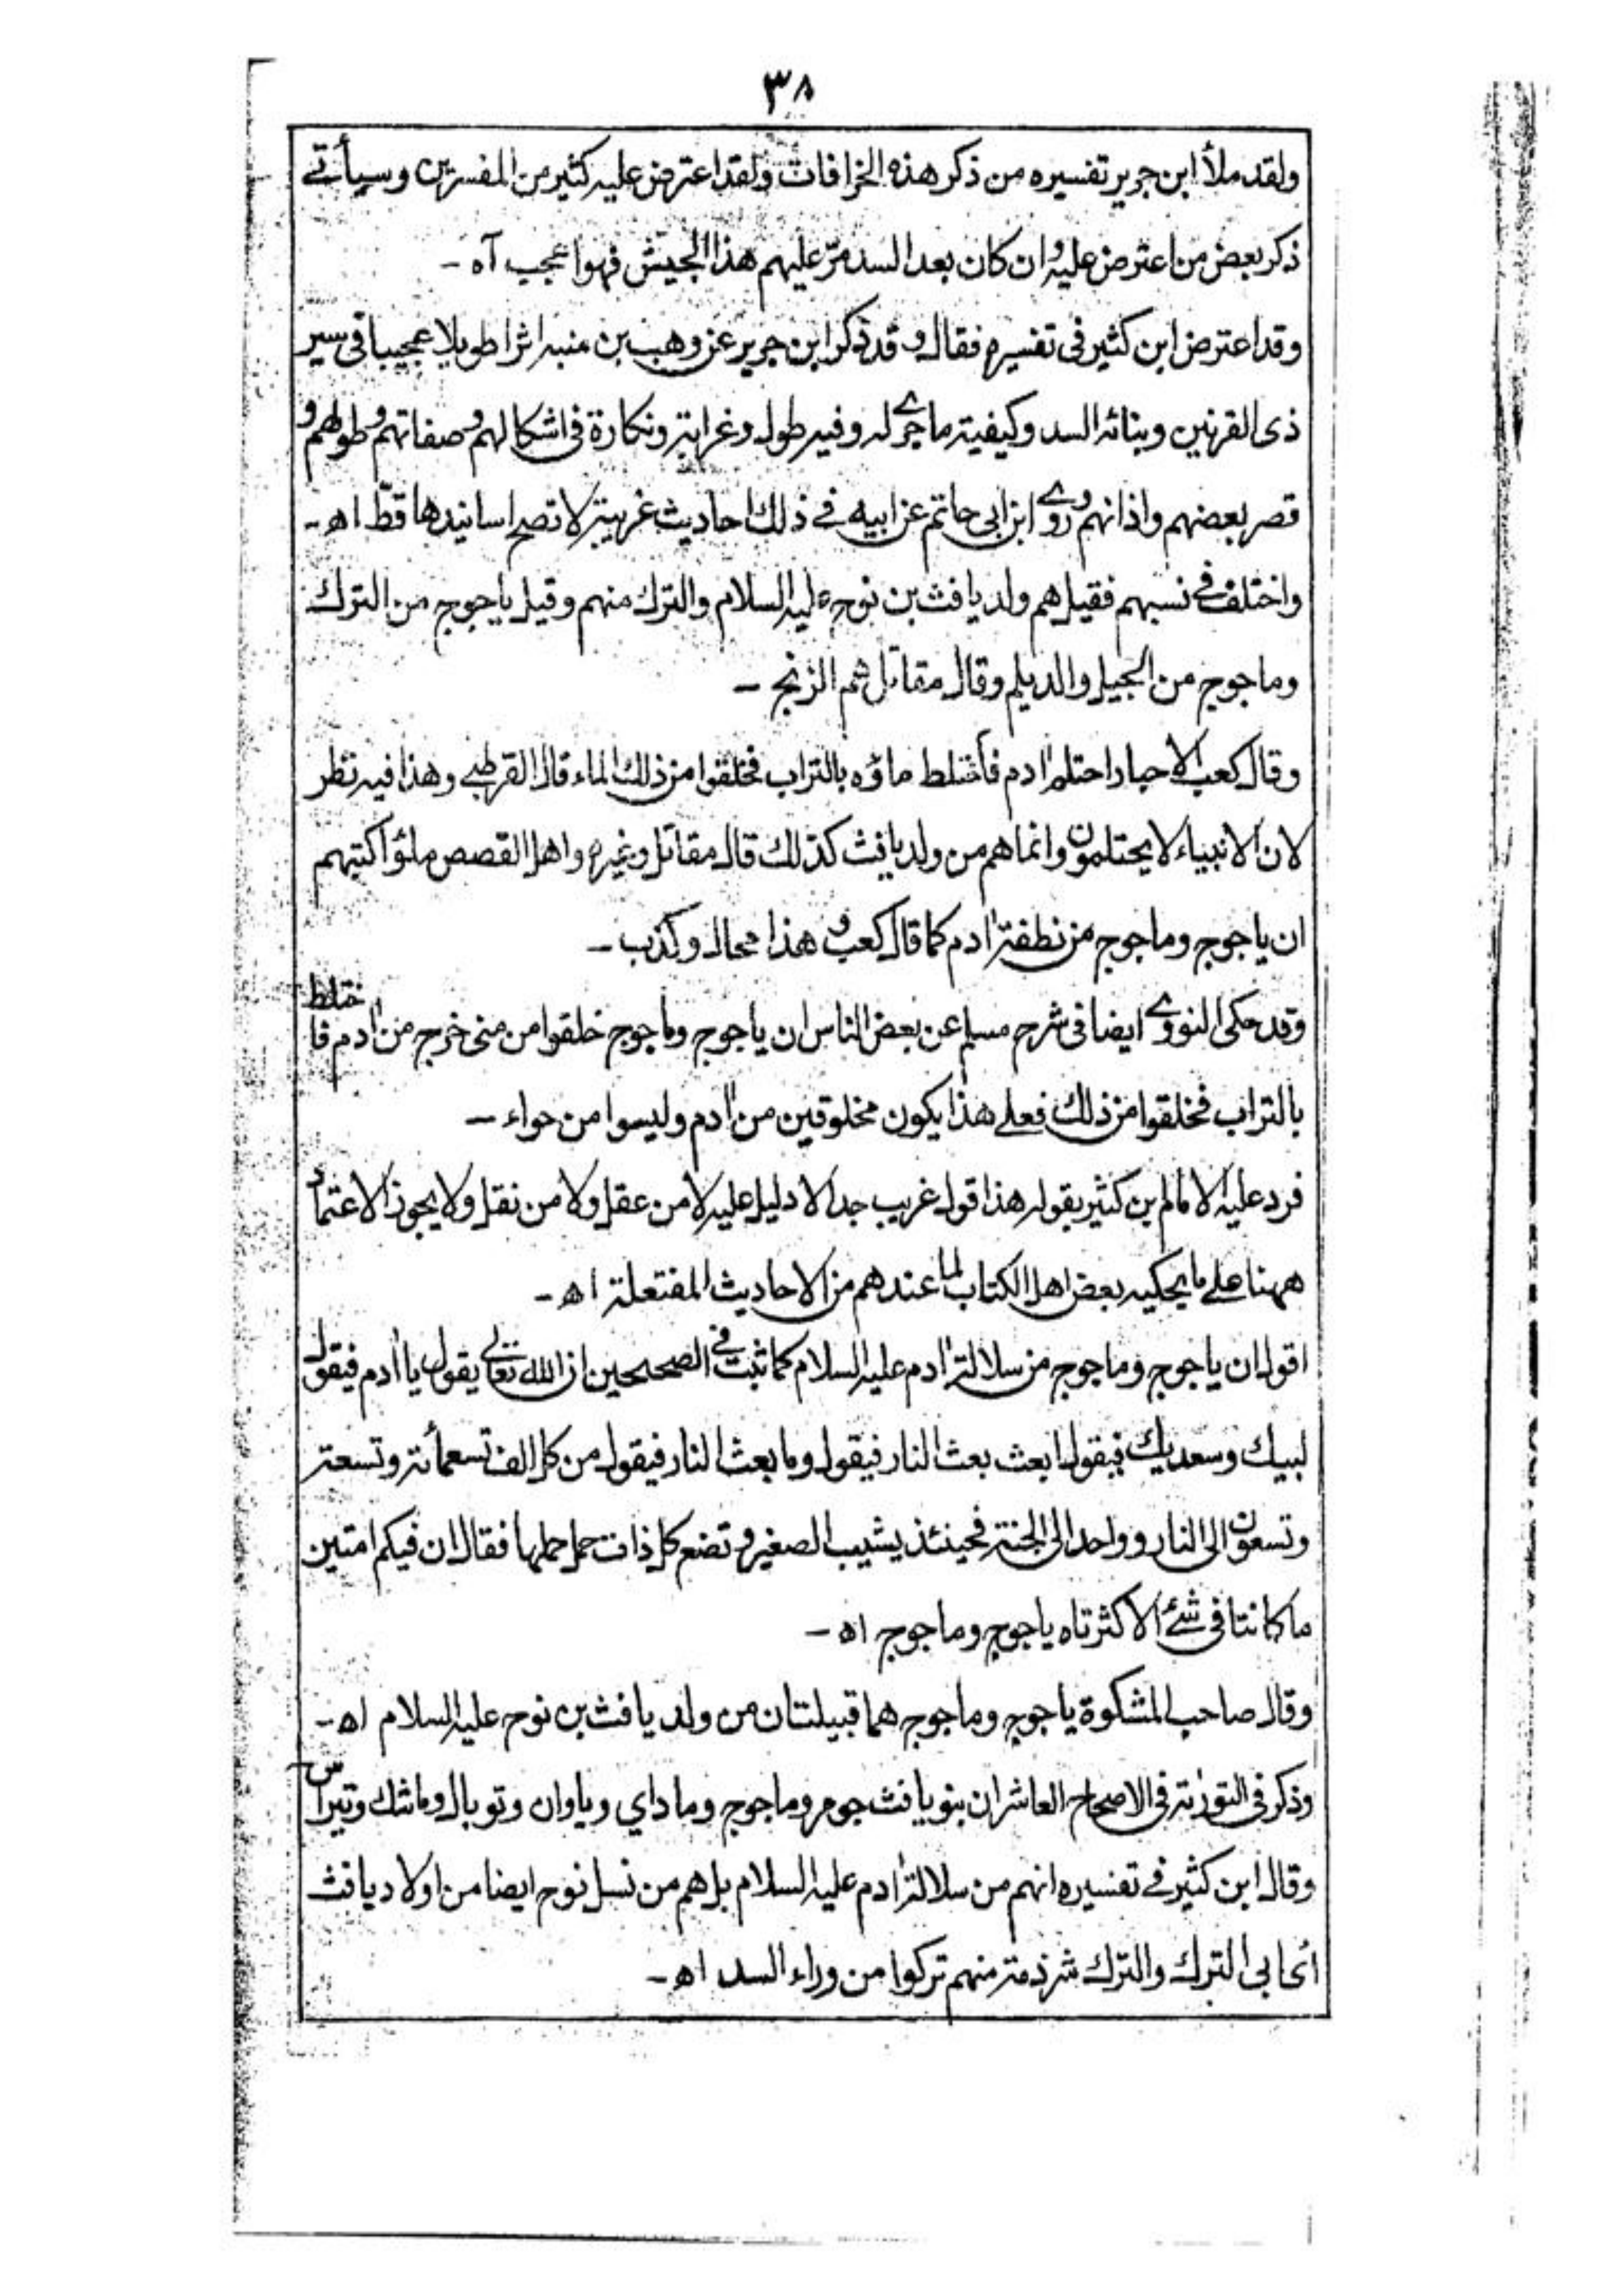 ٣٨
ولقد ملأ ابن جرير تفسيره من ذكر هذه الخرافات ولقد اعترض عليه كثير من المفسرين وسيأتے
ذكر بعض من اعترض عليه وان كان بعد السد مرّ عليهم هذا الجيش فهو اعجب آه ۔
وقد اعترض ابن كثير فى تفسيره فقال وقد ذكر ابن جرير عن وهب بن منبه اثرا طويلا عجيبا فى سير
ذى القرنين وبنائه السد وكيفية ماجرے له وفيه طول وغرابة ونكارة فى اشكالهم وصفاتهم وطولهم و
قصر بعضهم واذانهم وروے ابن ابى حاتم عن ابيه فے ذلك احاديث غريبة لا تصح اسانيدها قطّ اه۔
واختلف فے نسبهم فقيل هم ولد يافث بن نوح عليه السلام والترك منهم وقيل ياجوج من الترك
وماجوج من الجيل والديلم وقال مقاتل هم الزنج ۔
وقال كعب الاحبار احتلم ادم فأختلط ماؤه بالتراب فخلقوا من ذلك الماء قال القرطبے وهذا فيه نظر
لان الانبياء لا يحتلمون وانما هم من ولد يافث كذلك قال مقاتل وغيره واهل القصص ملؤا كتبهم
ان ياجوج وماجوج من نطفة ادم كما قال كعب وهذا محال وكذب ۔
وقد حكى النووے ايضا فى شرح مسلم عن بعض الناس ان ياجوج وماجوج خلقوا من منى خرج من ادم فاختلط
بالتراب فخلقوا من ذلك فعلے هذا يكون مخلوقين من ادم وليسوا من حواء ۔
فرد عليه الامام بن كثير بقوله هذا قول غريب جدا لا دليل عليه لا من عقل ولا من نقل ولا يجوز الاعتماد
ههنا علے ما يحكيه بعض اهل الكتاب لما عندهم من الاحاديث المفتعلة اه ۔
اقول ان ياجوج وماجوج من سلالة ادم عليه السلام كما ثبت فے الصحيحين ان الله تعالے يقول يا ادم فيقول
لبيك وسعديك فيقول ابعث بعث النار فيقول وما بعث النار فيقول من كل الف تسعمائة وتسعة
وتسعون الى النار وواحد الى الجنة فحينئذ يشيب الصغير وتضع كل ذات حمل حملها فقال ان فيكم امتين
ما كانتا فى شئے الا كثرتاه ياجوج وماجوج اه ۔
وقال صاحب المشكوة ياجوج وماجوج هما قبيلتان من ولد يافث بن نوح عليه السلام اه ۔
وذكر فى التورٰة فى الاصحاح العاشر ان بنو يافث جومر وماجوج وماداي وياوان وتوبال وماشك وتيراس
وقال ابن كثير فے تفسيره انهم من سلالة ادم عليه السلام بل هم من نسل نوح ايضا من اولاد يافث
أى ابى الترك والترك شرذمة منهم تركوا من وراء السد اه ۔